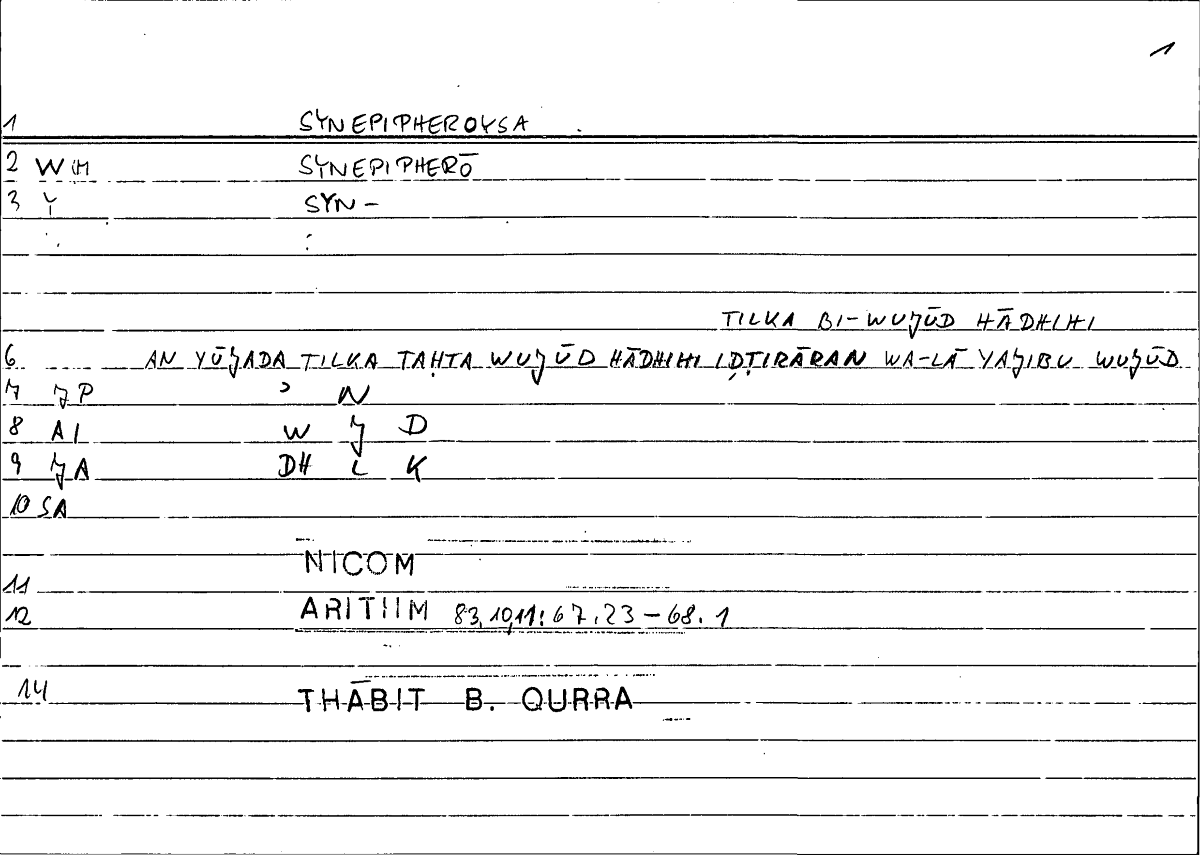 1
1 SYNEPIPHEROYSA
2 WM SYNEPIPHERŌ
3 Y SYN-
:
TILKA BI-WUJŪD HĀDHIHI
6 AN YŪJADA TILKA TAḤTA WUJŪD HĀDHIHI IḌṬIRĀRAN WA-LĀ YAJIBU WUJŪD
7 JP ʾ N
8 AI W J D
9 JA DH L K
10 SA
NICOM
11
12 ARITIIM 83,10,11:67.23-68.1
14 THĀBIT B. QURRA